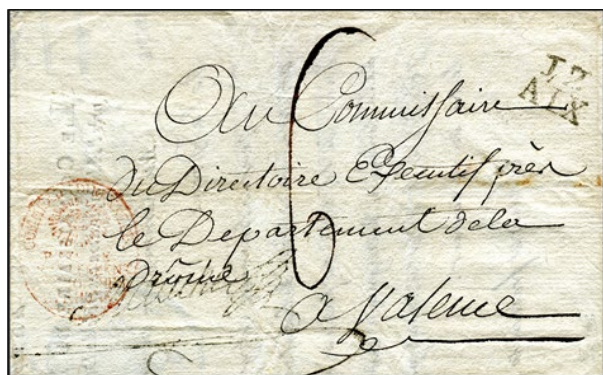 12
AIX
6
Au Commissaire
du Directoire Executif près
le Departement de la
Drôme
a Valence